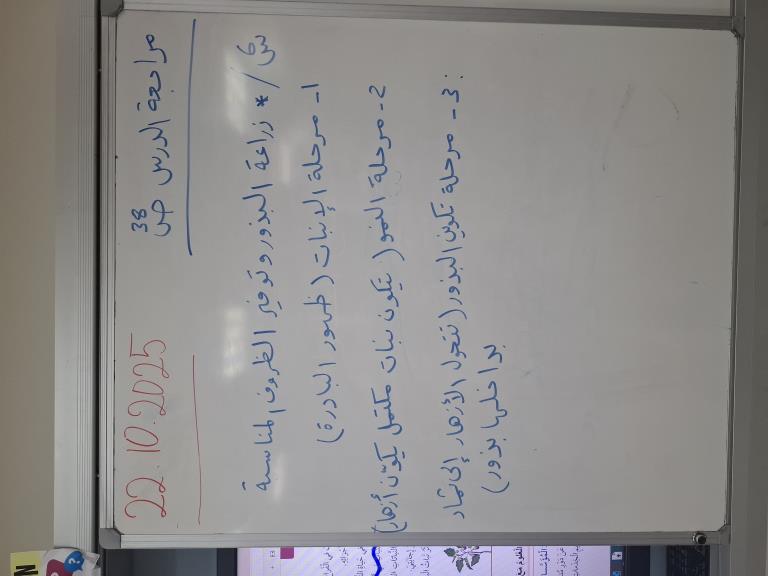 22.10.2025
مراجعة الدرس ص 38
س6 / * زراعة البذور وتوفير الظروف المناسبة
1- مرحلة الإنبات (ظهور البادرة)
2- مرحلة النمو (يتكون نبات مكتمل يكوّن أزهار)
3- مرحلة تكوين البذور (تتحول الأزهار إلى ثمار
بداخلها بذور)